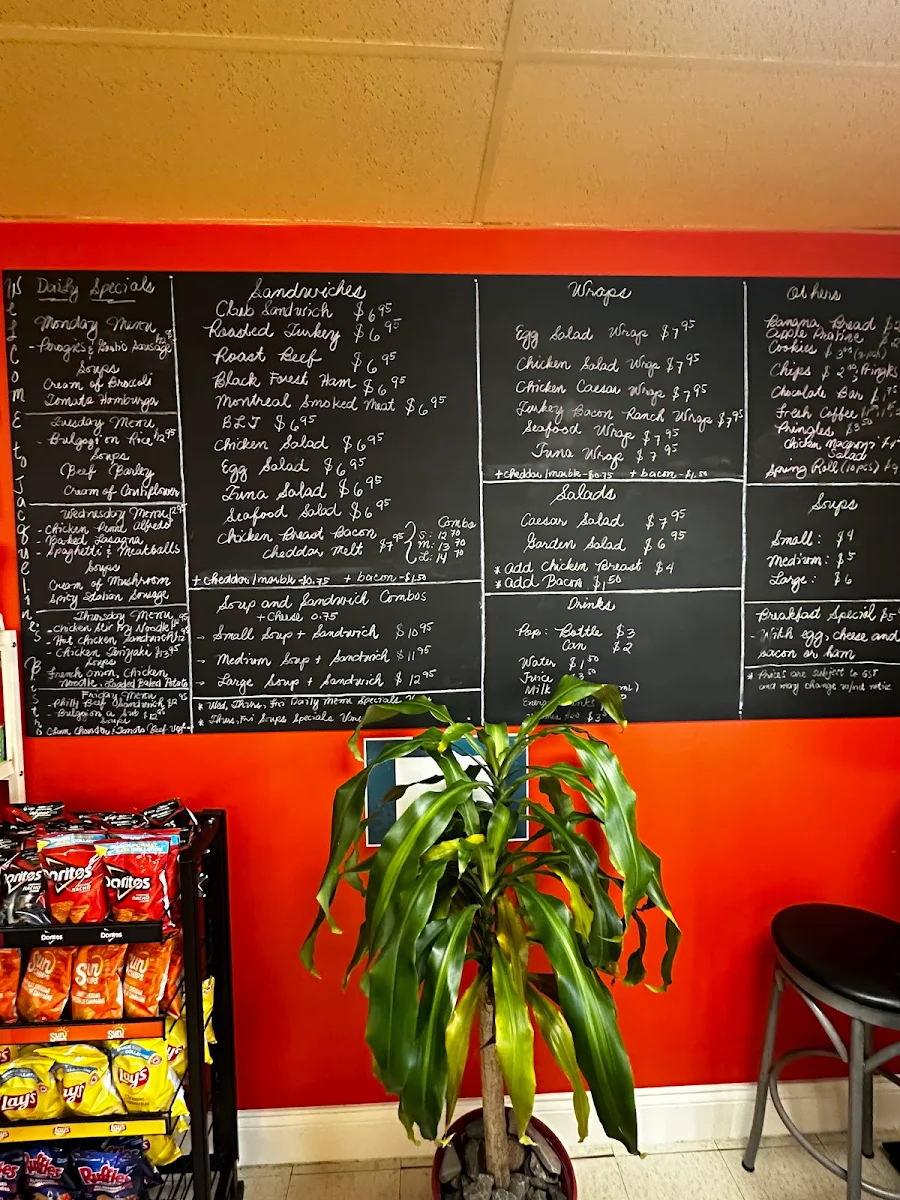 Welcome to Jacqueline's
Daily Specials
Monday Menu
- Perogies & Garlic Sausage
Soups
Cream of Broccoli
Tomato Hamburga
Tuesday Menu
- Bulgogi on Rice $12.95
Soups
Beef Barley
Cream of Cauliflower
Wednesday Menu
- Chicken Penne Alfredo
Baked Lasagna
- Spaghetti & Meatballs
Soups
Cream of Mushroom
Spicy Italian Sausage
Thursday Menu
- Chicken Stir Fry Noodle
- Hot Chicken Sandwich
- Chicken Teriyaki $13.95
Soups
French onion, Chicken
Noodle, Loaded Baked Potato
Friday Menu
- Philly Beef Sandwich
- Bulgogi on a Sub $12.95
Soups
Clam Chowder, Tomato Beef
Sandwiches
Club Sandwich $6.95
Roasted Turkey $6.95
Roast Beef $6.95
Black Forest Ham $6.95
Montreal Smoked Meat $6.95
BLT $6.95
Chicken Salad $6.95
Egg Salad $6.95
Tuna Salad $6.95
Seafood Salad $6.95
Chicken Breast Bacon
cheddar melt $7.95
Combo
S: 12.70
M: 13.70
L: 14.70
+ cheddar/marble - $0.75 + bacon - $1.50
Soup and Sandwich Combos
+ Cheese 0.75
- Small Soup + Sandwich $10.95
- Medium Soup + Sandwich $11.95
- Large Soup + Sandwich $12.95
* Wed, Thurs, Fri Daily Menu Specials
* Thurs, Fri Soups Specials
Wraps
Egg Salad Wrap $7.95
Chicken Salad Wrap $7.95
Chicken Caesar Wrap $7.95
Turkey Bacon Ranch Wrap $7.95
Seafood Wrap $7.95
Tuna Wrap $7.95
+ cheddar/marble - $0.75 + bacon - $1.50
Salads
Caesar Salad $7.95
Garden Salad $6.95
* Add Chicken Breast $4
* Add Bacon $1.50
Drinks
Pop: Bottle $3
Can $2
Water $1.50
Juice
Milk
Others
Banana Bread
Apple Praline
Cookies
Chips
Chocolate Bar
Fresh Coffee
Pringles $3.50
Chicken Macaroni
Salad
Spring Roll (10pcs)
Soups
Small: $4
Medium: $5
Large: $6
Breakfast Special
- With egg, cheese and
bacon or ham
* Prices are subject to GST
and may change w/out notice
Doritos
Doritos
Doritos
Doritos
Doritos
Sun
Sun
Sun
Sun
Sun
Lay's
Lay's
Lay's
Lay's
Lay's
Ruffles
Ruffles